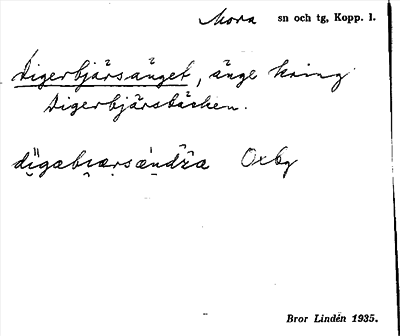 Mora sn och tg, Kopp. l.
Digerbjärsänget, änge kring
Digerbjärsbäcken.
Oxby
Bror Lindén 1935.